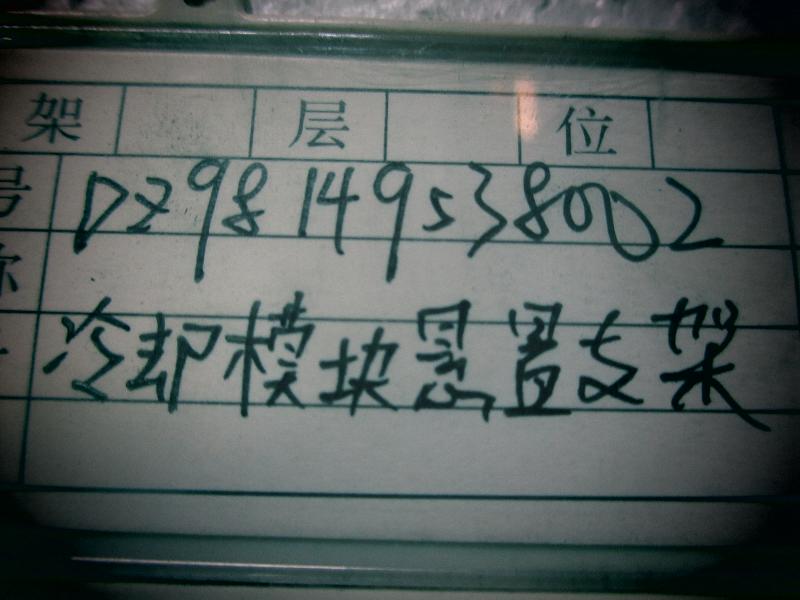 架 层 位
号 DZ98149538002
称
冷却模块悬置支架